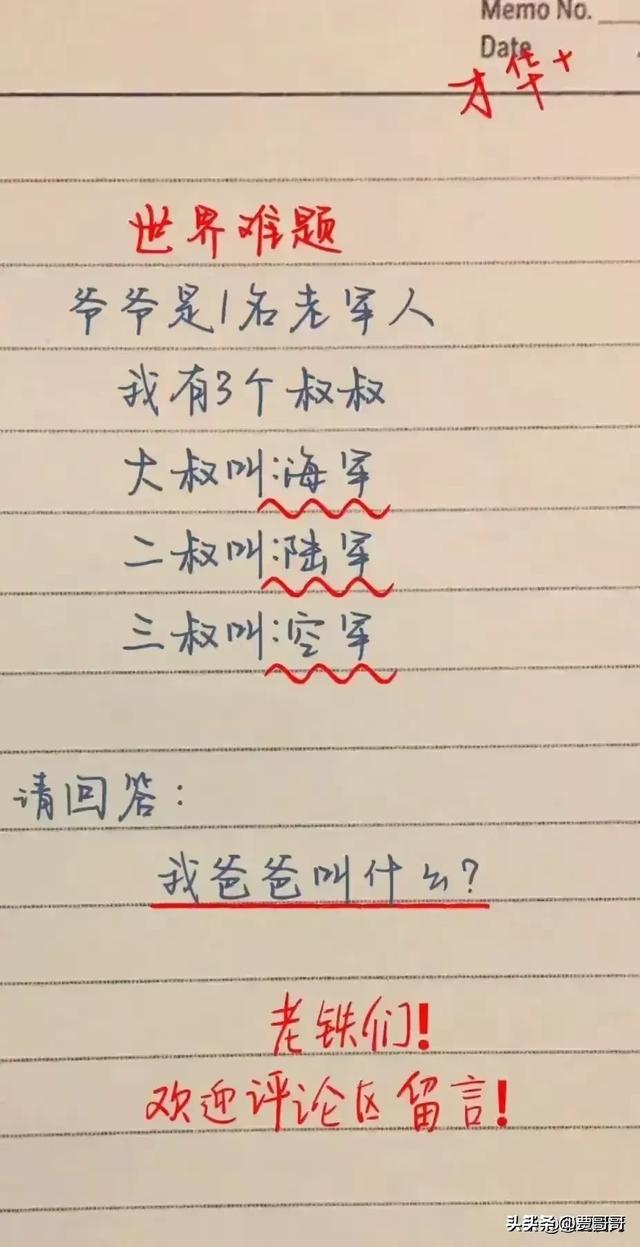 Memo No.
Date
才华+
世界难题
爷爷是1名老军人
我有3个叔叔
大叔叫:海军
二叔叫:陆军
三叔叫:空军
请回答:
我爸爸叫什么?
老铁们!
欢迎评论区留言!
头条@贾哥哥